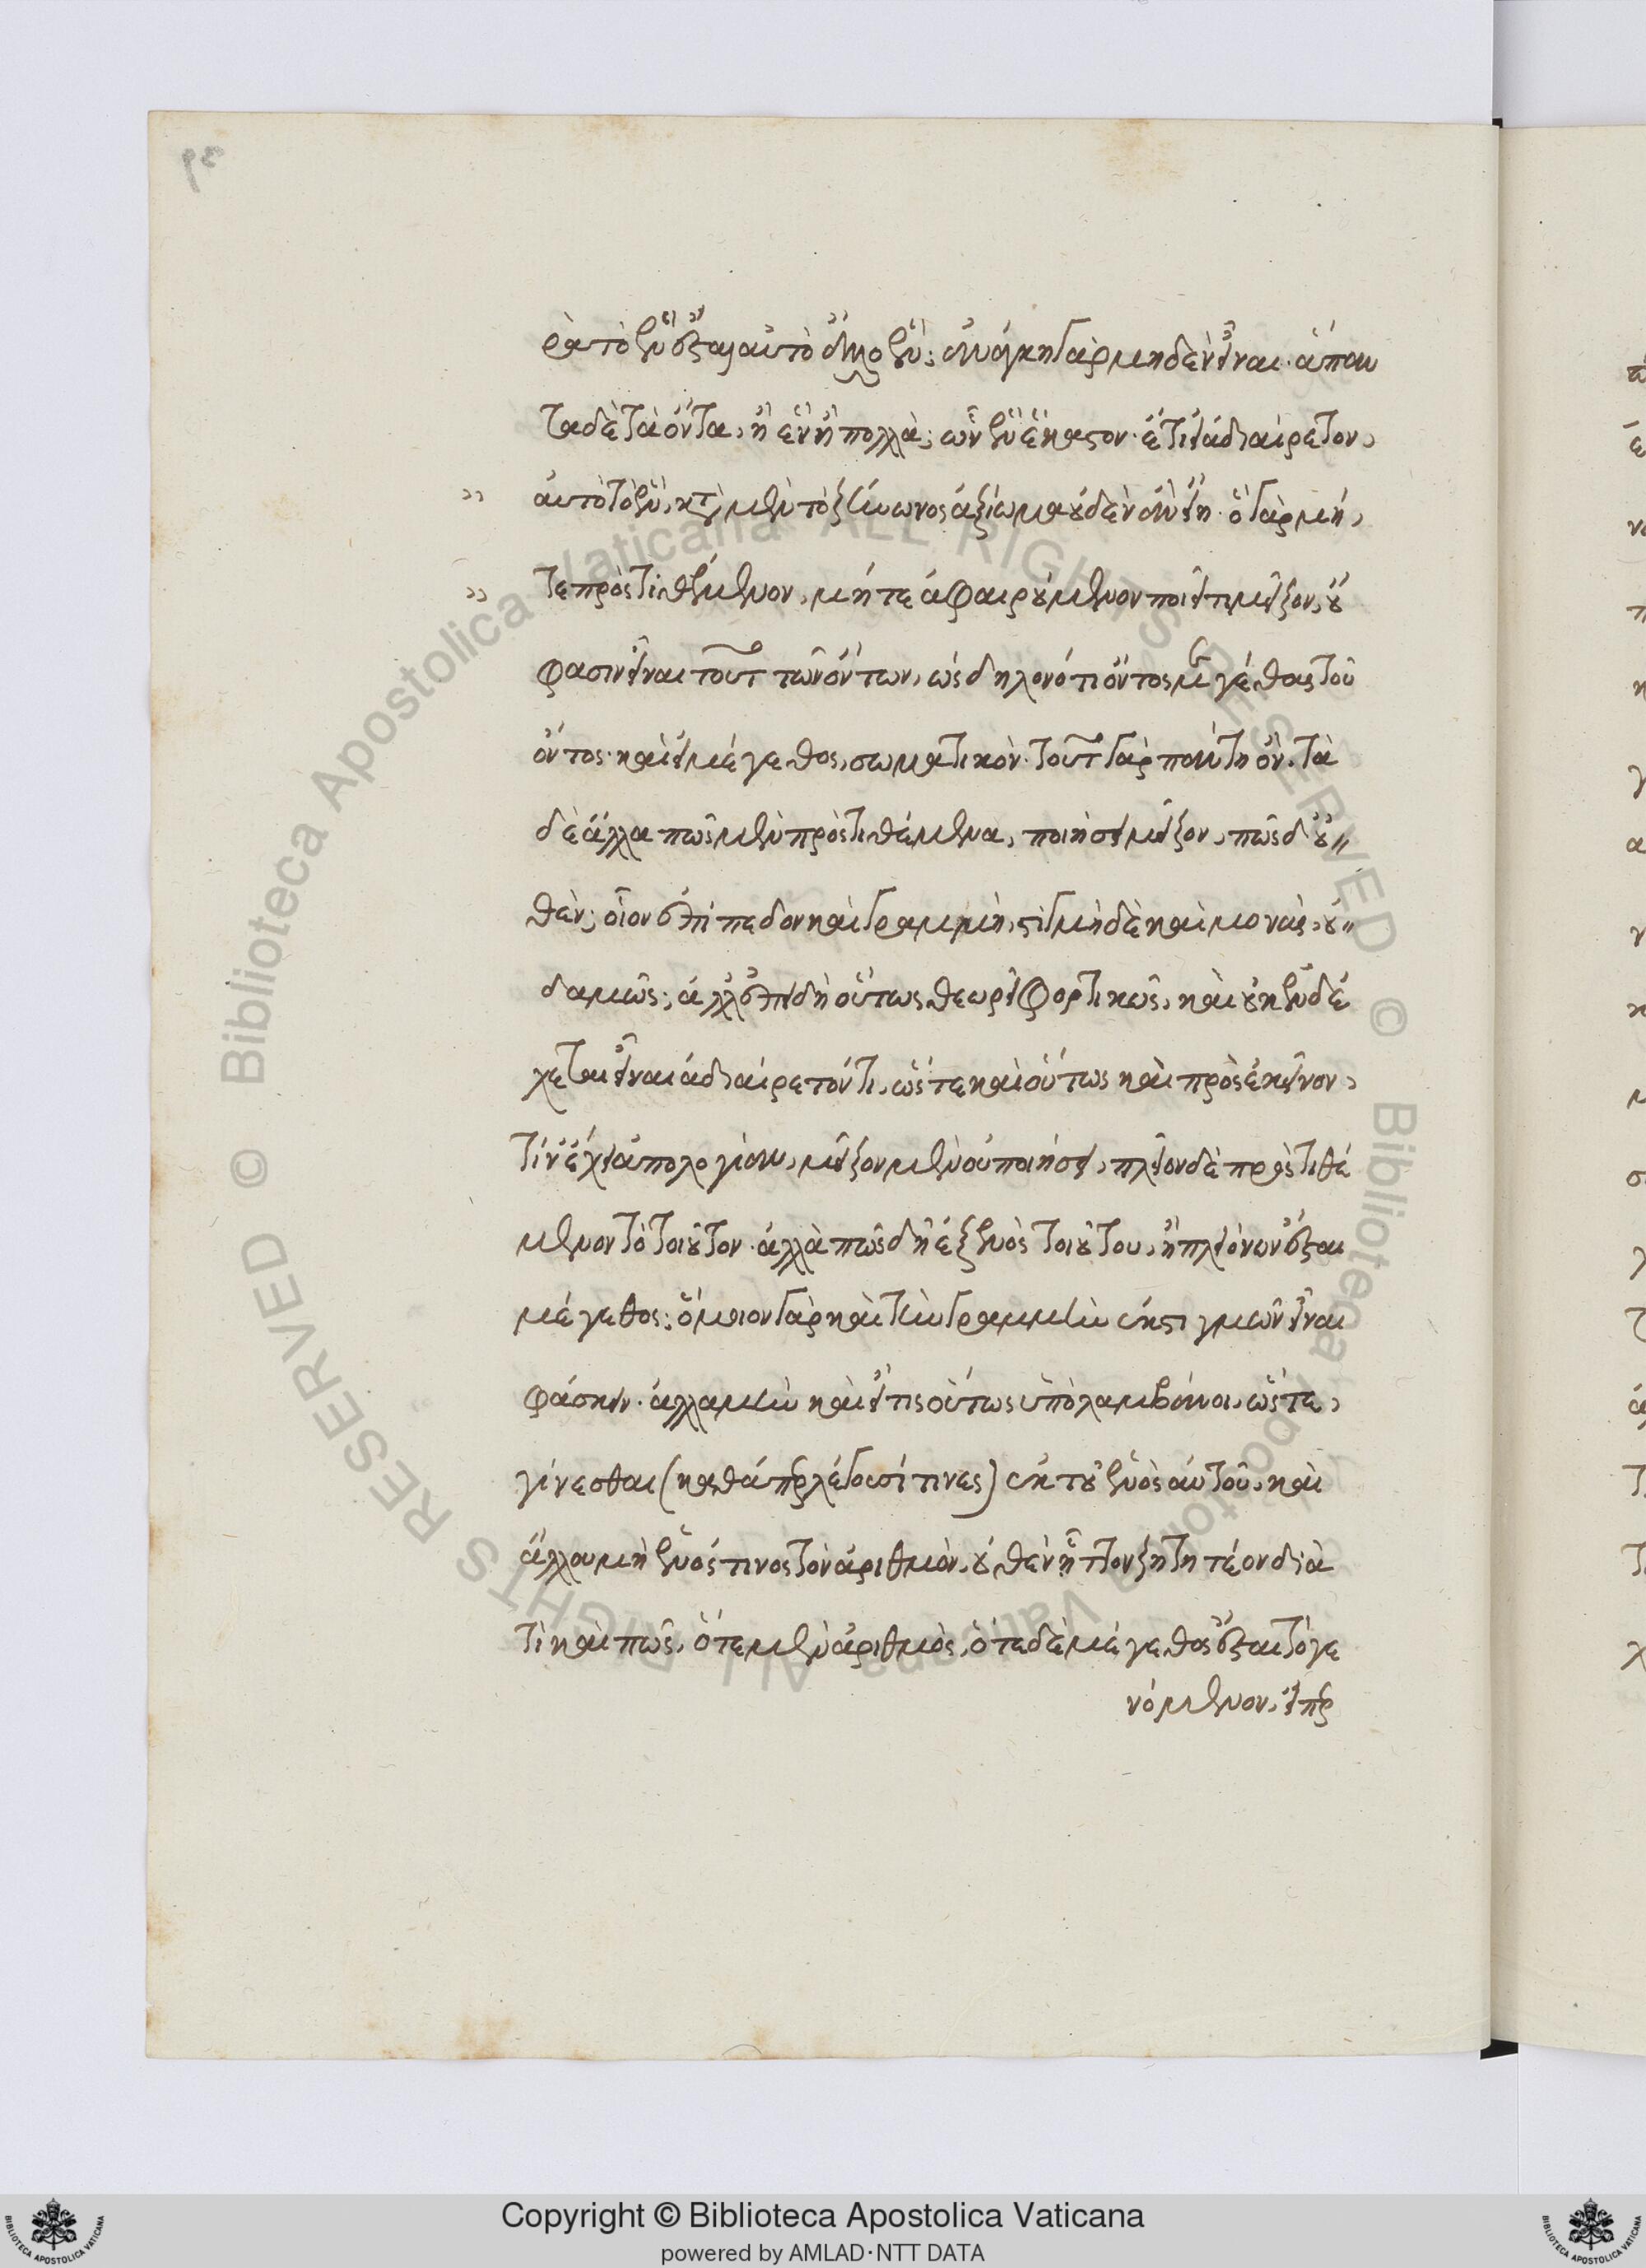 ρὰ τὸ ἓν ἔσται αὐτὸ ἄλλο ἕν; ἀνάγκη γὰρ μηδὲν εἶναι· ἅπαν
τα δὲ τὰ ὄντα, ἢ ἓν ἢ πολλὰ; ὧν ἓν ἕκαστον· ἔτι εἰ ἀδιαίρετον,
αὐτὸ τὸ ἕν, κατὰ μὲν τὸ ζήνωνος ἀξίωμα οὐδὲν ἂν εἴη· ὃ γὰρ μή,
τε προστιθέμενον, μήτε ἀφαιρούμενον ποιεῖ τι μεῖζον, οὔ
φασιν εἶναι τοῦτο τῶν ὄντων, ὡς δηλονότι ὄντος μεγέθους τοῦ
ὄντος· καὶ εἰ μέγεθος, σωματικόν· τοῦτο γὰρ πάντη ὄν. τὰ
δὲ ἄλλα πῶς μὲν προστιθέμενα, ποιήσει μεῖζον, πῶς δ' οὐ〃
θέν; οἷον ἐπίπεδον καὶ γραμμή, στιγμὴ δὲ καὶ μονάς, οὐ〃
δαμῶς; ἀλλ' ἐπειδὴ οὕτως θεωρεῖ φορτικῶς, καὶ οὐκ ἐνδέ
χεται εἶναι ἀδιαίρετόν τι, ὥστε καὶ οὕτως καὶ πρὸς ἐκεῖνον,
τίν' ἔχει ἀπολογίαν, μεῖζον μὲν οὐ ποιήσει, πλεῖον δὲ προστιθέ
μενον τὸ τοιοῦτον· ἀλλὰ πῶς δὴ ἐξ ἑνὸς τοιούτου, ἢ πλειόνων ἔσται
μέγεθος; ὅμοιον γὰρ καὶ τὴν γραμμὴν ἐκ στιγμῶν εἶναι
φάσκειν· ἀλλὰ μὴν καὶ εἴ τις οὕτως ὑπολαμβάνοι, ὥστε,
γίνεσθαι (καθάπερ λέγουσί τινες) ἐκ τοῦ ἑνὸς αὐτοῦ, καὶ
ἄλλου μὴ ἑνός τινος τὸν ἀριθμόν, οὐθὲν ἧττον ζητητέον διὰ
τί καὶ πῶς, ὁτὲ μὲν ἀριθμὸς, ὁτὲ δὲ μέγεθος ἔσται τὸ γε
νόμενον, εἴπερ
Copyright © Biblioteca Apostolica Vaticana
powered by AMLAD·NTT DATA